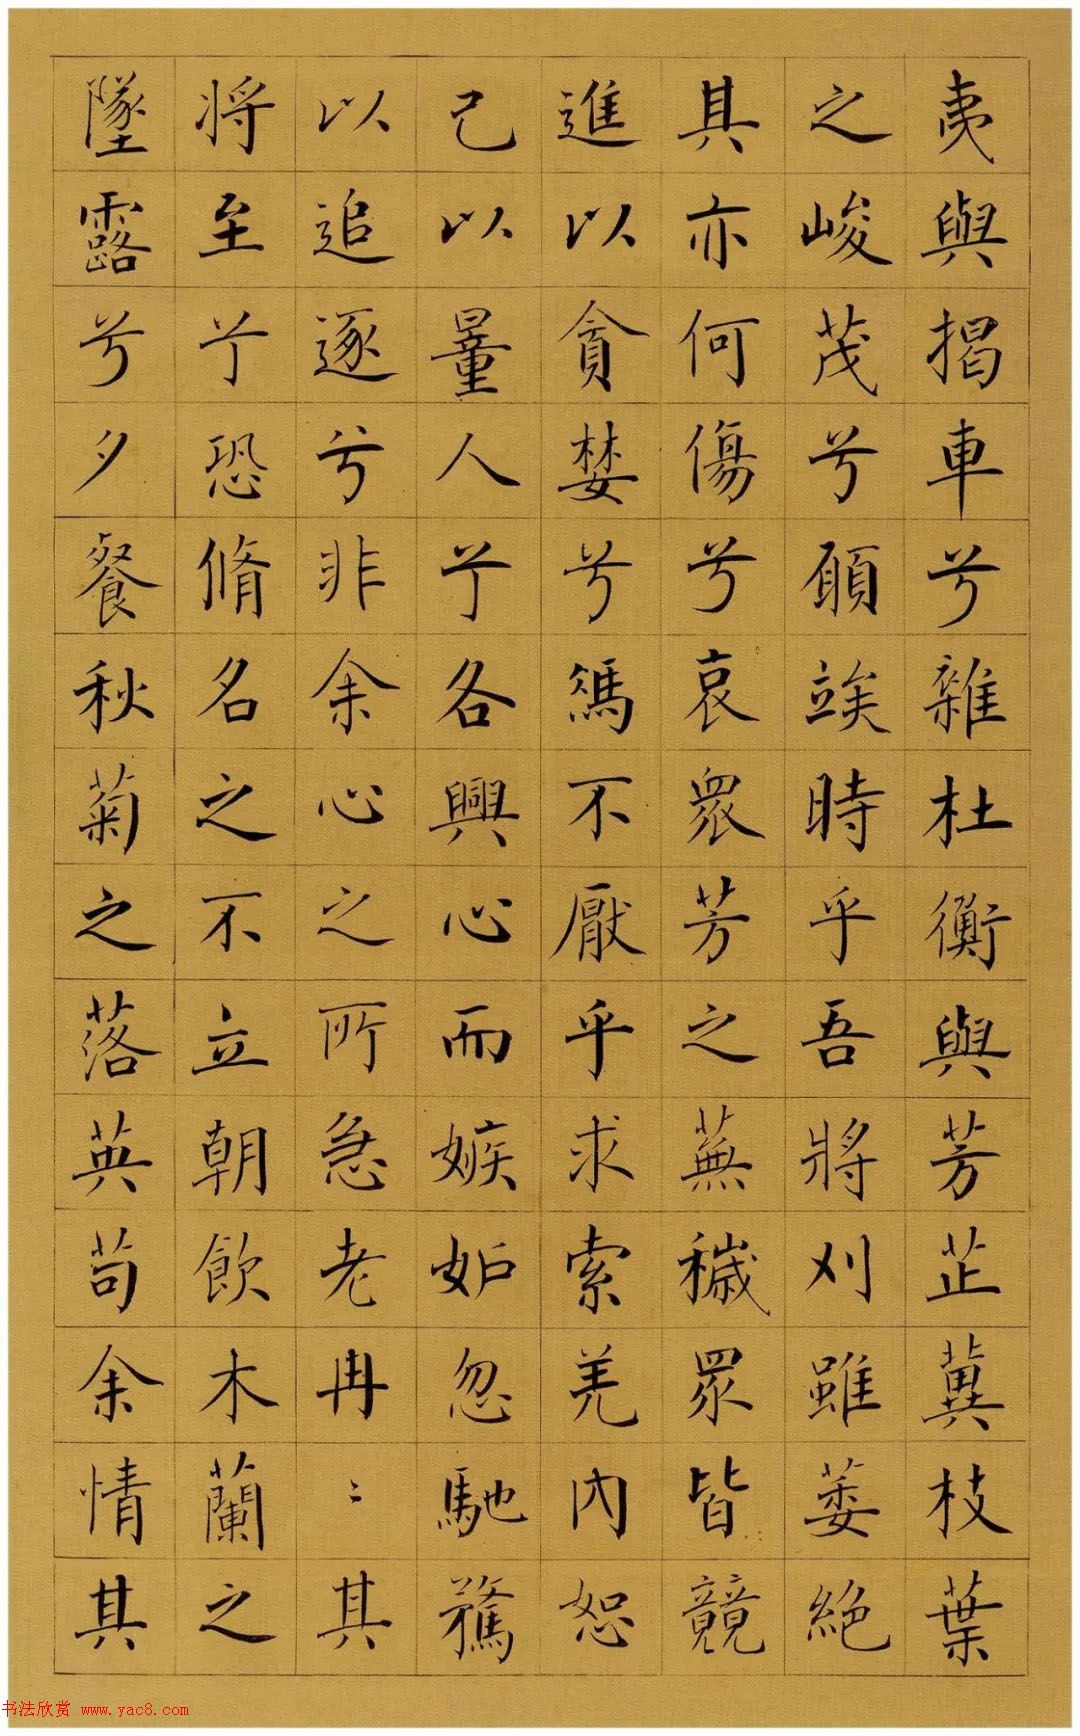 夷與揭車兮雜杜衡與芳芷冀枝葉
之峻茂兮願竢時乎吾將刈雖萎絶
其亦何傷兮哀衆芳之蕪穢眾皆競
進以貪婪兮憑不厭乎求索羌內恕
己以量人兮各興心而嫉妒忽馳騖
以追逐兮非余心之所急老冉〻其
將至兮恐脩名之不立朝飲木蘭之
墜露兮夕餐秋菊之落英苟余情其
书法欣赏 www.yac8.com